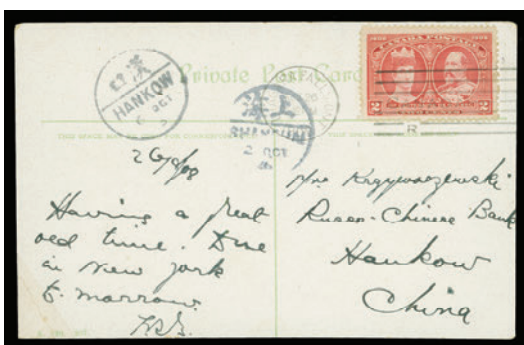 Private Post Card
CANADA POSTAGE
2 2
TWO CENTS
漢口
HANKOW
6 OCT
上海
SHANGHAI
2 OCT
R
26/8/08
Having a great
old time. Due
in New York
to-morrow.
Mr Krzywoszewski
Russo-Chinese Bank
Hankow
China